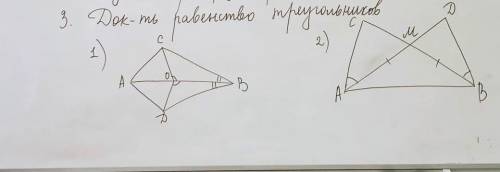 3. Док-ть равенство треугольников
1)
C
A
O
B
D
2)
C
D
M
A
B